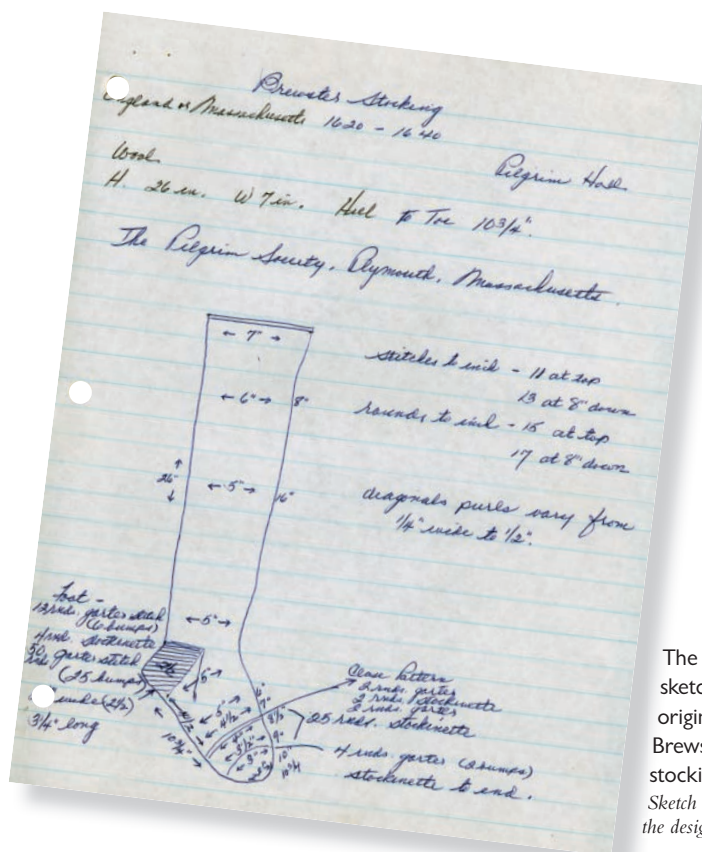 Brewster Stocking
England or Massachusetts 1620 - 1640
Pilgrim Hall
Wool
H. 26 in. W 7 in. Heel to Toe 10 3/4".
The Pilgrim Society, Plymouth, Massachusetts.
← 7" →
stitches to inch - 11 at top
13 at 8" down
← 6" → 8"
rounds to inch - 15 at top
17 at 8" down
26"
← 5" → 16"
diagonals purls vary from
1/4" wide to 1/2".
← 5" →
Foot -
12 rnds. garter stitch
(6 bumps)
4 rnd. stockinette
50 rnds garter stitch
(25 bumps)
wide (2 1/2)
3 1/4" long
5"
6"
4 1/2
7"
8 1/2"
9"
10"
10 3/4
10 3/4"
5 1/2"
3"
Pattern
2 rnds. garter
2 rnds. stockinette
2 rnds. garter
25 rnds. stockinette
4 rnds. garter (2 bumps)
stockinette to end.
The
sketc
origin
Brews
stocki
Sketch
the desig